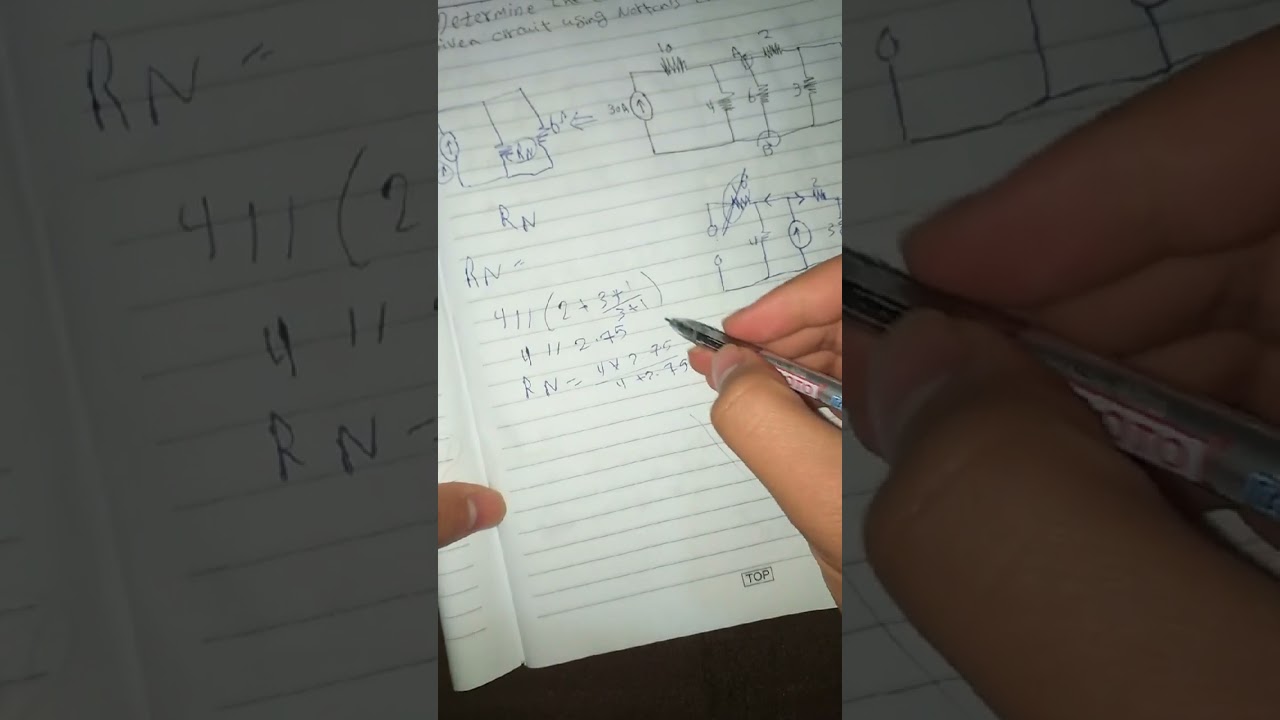 Determine the
given circuit using Norton's
10
A
2
30A
4
6
3
B
6
RN
RN
2
4
3
RN =
4 || (2 + 3*1/3+1)
4 || 2.75
RN = 4x2.75/4+2.75
TOP
RN =
4 || (2
4 ||
RN =